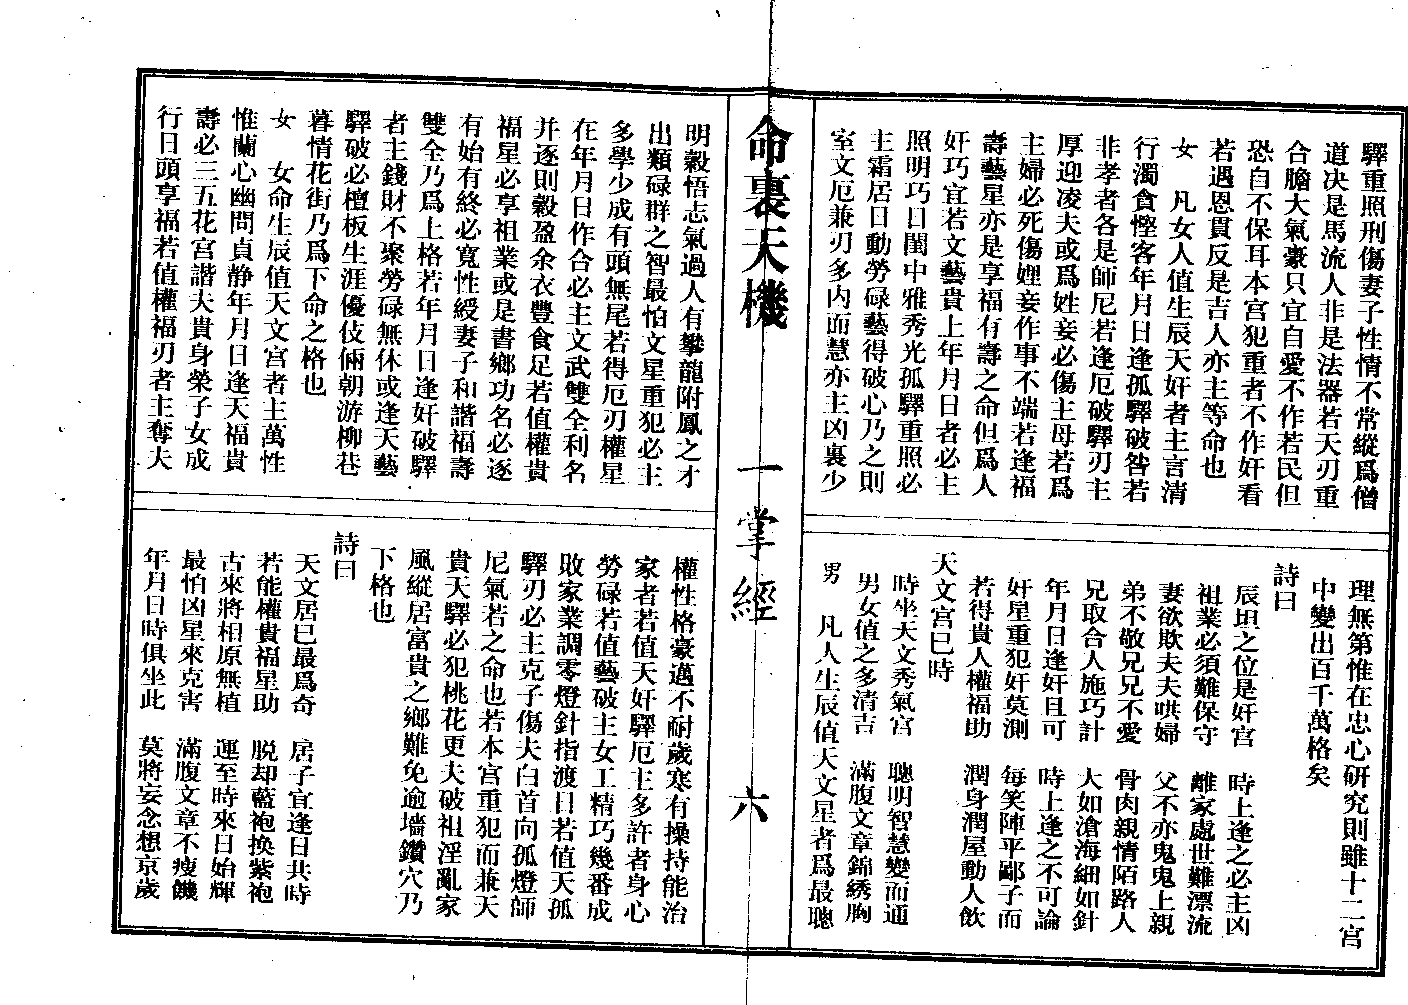 驛重照刑傷妻子性情不常縱爲僧
道决是馬流人非是法器若天刃重
合膽大氣豪只宜自愛不作若民但
恐自不保耳本宮犯重者不作奸看
若遇恩貫反是吉人亦主等命也
女　凡女人值生辰天奸者主言清
行濁貪慳客年月日逢孤驛破咎若
非孝者各是師尼若逢厄破驛刃主
厚迎凌夫或爲姓妾必傷主母若爲
主婦必死傷娌妾作事不端若逢福
壽藝星亦是享福有壽之命但爲人
奸巧宜若文藝貴上年月日者必主
照明巧日閨中雅秀光孤驛重照必
主霜居日動勞碌藝得破心乃之則
室文厄兼刃多内而慧亦主凶裏少
理無第惟在忠心研究則雖十二宮
中變出百千萬格矣
詩曰
辰垣之位是奸宮　時上逢之必主凶
祖業必須難保守　離家處世難漂流
妻欲欺夫夫哄婦　父不亦鬼鬼上親
弟不敬兄兄不愛　骨肉親情陌路人
兄取合人施巧計　大如滄海細如針
年月日逢奸且可　時上逢之不可論
奸星重犯奸莫測　每笑陣平鄙子而
若得貴人權福助　潤身潤屋動人飲
天文宮巳時
時坐天文秀氣宮　聰明智慧變而通
男女值之多清吉　滿腹文章錦綉胸
男　凡人生辰值天文星者爲最聰
命裏天機　一掌經　六
明穀悟志氣過人有攀龍附鳳之才
出類碌群之智最怕文星重犯必主
多學少成有頭無尾若得厄刃權星
在年月日作合必主文武雙全利名
并逐則穀盈余衣豐食足若值權貴
福星必享祖業或是書鄉功名必逐
有始有終必寬性綬妻子和諧福壽
雙全乃爲上格若年月日逢奸破驛
者主錢財不聚勞碌無休或逢天藝
驛破必檀板生涯優伎倆朝游柳巷
暮情花街乃爲下命之格也
女　女命生辰值天文宮者主萬性
惟蘭心幽問貞静年月日逢天福貴
壽必三五花宮諧夫貴身榮子女成
行日頭享福若值權福刃者主奪夫
權性格豪邁不耐歲寒有操持能治
家者若值天奸驛厄主多許者身心
勞碌若值藝破主女工精巧幾番成
敗家業調零燈針指渡日若值天孤
驛刃必主克子傷夫白首向孤燈師
尼氣若之命也若本宮重犯而兼天
貴天驛必犯桃花更夫破祖淫亂家
風縱居富貴之鄉難免逾墻鑽穴乃
下格也
詩曰
天文居巳最爲奇　居子宜逢日共時
若能權貴福星助　脱却藍袍換紫袍
古來將相原無植　運至時來日始輝
最怕凶星來克害　滿腹文章不瘦饑
年月日時俱坐此　莫將妄念想京歲